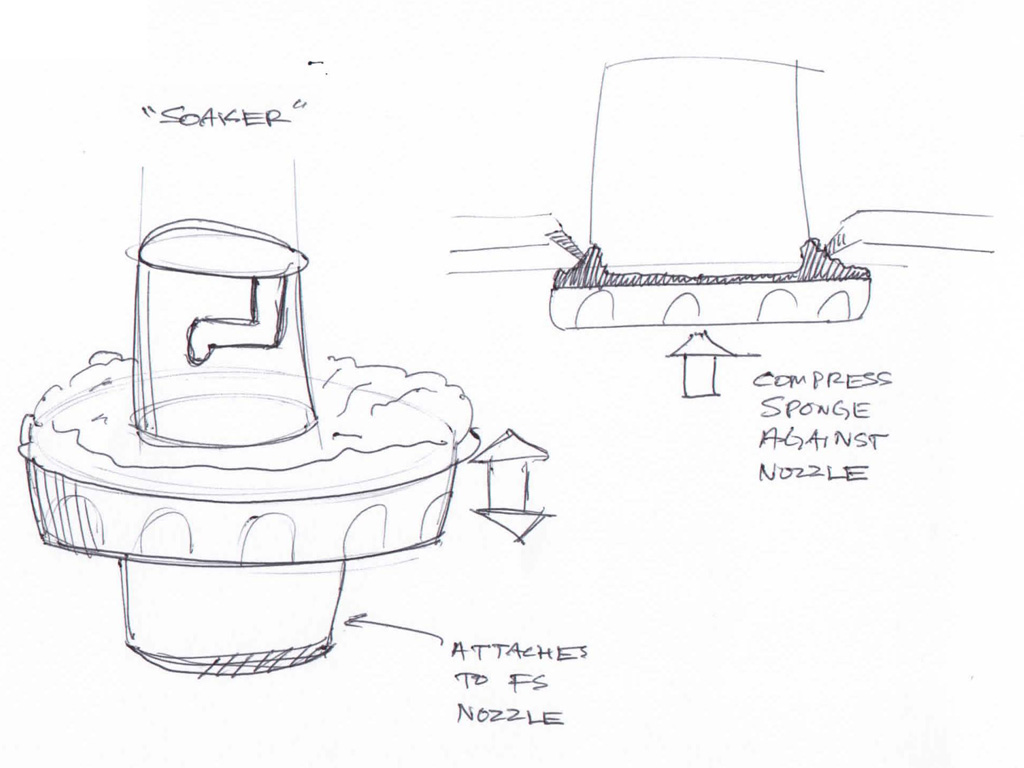 "SOAKER"
COMPRESS
SPONGE
AGAINST
NOZZLE
ATTACHES
TO FS
NOZZLE